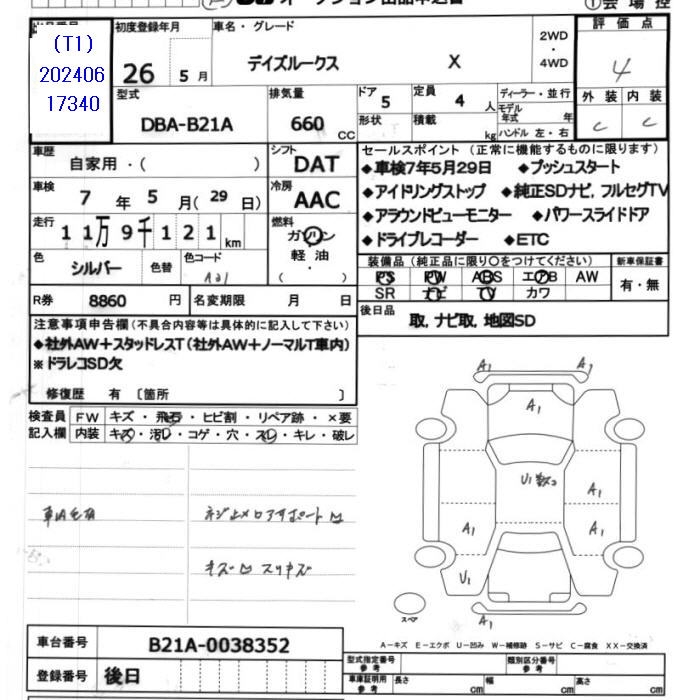 (T1)
202406
17340
初度登録年月
26 5月
車名・グレード
デイズルークス X
2WD
・
4WD
評価点
4
型式
DBA-B21A
排気量
660 CC
ドア
5
形状
定員
4 人
積載 kg
ディーラー・並行
モデル
年式 年
ハンドル 左・右
外装 内装
C C
車歴
自家用・( )
シフト
DAT
車検
7年 5月(29日)
冷房
AAC
走行
11万9千121km
燃料
ガソリン
軽油
( )
色
シルバー
色替
色コード
A21
R券 8860 円
名変期限 月 日
セールスポイント(正常に機能するものに限ります)
◆車検7年5月29日 ◆プッシュスタート
◆アイドリングストップ ◆純正SDナビ,フルセグTV
◆アラウンドビューモニター ◆パワースライドドア
◆ドライブレコーダー ◆ETC
装備品(純正品に限り○をつけてください)
新車保証書
PS PW ABS エアB AW
SR ナビ TV カワ
有・無
後日品
取,ナビ取,地図SD
注意事項申告欄(不具合内容等は具体的に記入して下さい)
◆社外AW+スタッドレスT(社外AW+ノーマルT車内)
※ドラレコSD欠
修復歴 有 〔箇所 〕
検査員
記入欄
FW キズ・飛石・ヒビ割・リペア跡・×要
内装 キズ・汚レ・コゲ・穴・スレ・キレ・破レ
A1 A1
A1
U1
A1
A1 A1
U1
A1
スペア
A-キズ E-エクボ U-凹み W-補修跡 S-サビ C-腐食 XX-交換済
車台番号
B21A-0038352
登録番号
後日
型式指定番号
参考
類別区分番号
参考
車庫証明用
参考
長さ cm
幅 cm
高さ cm